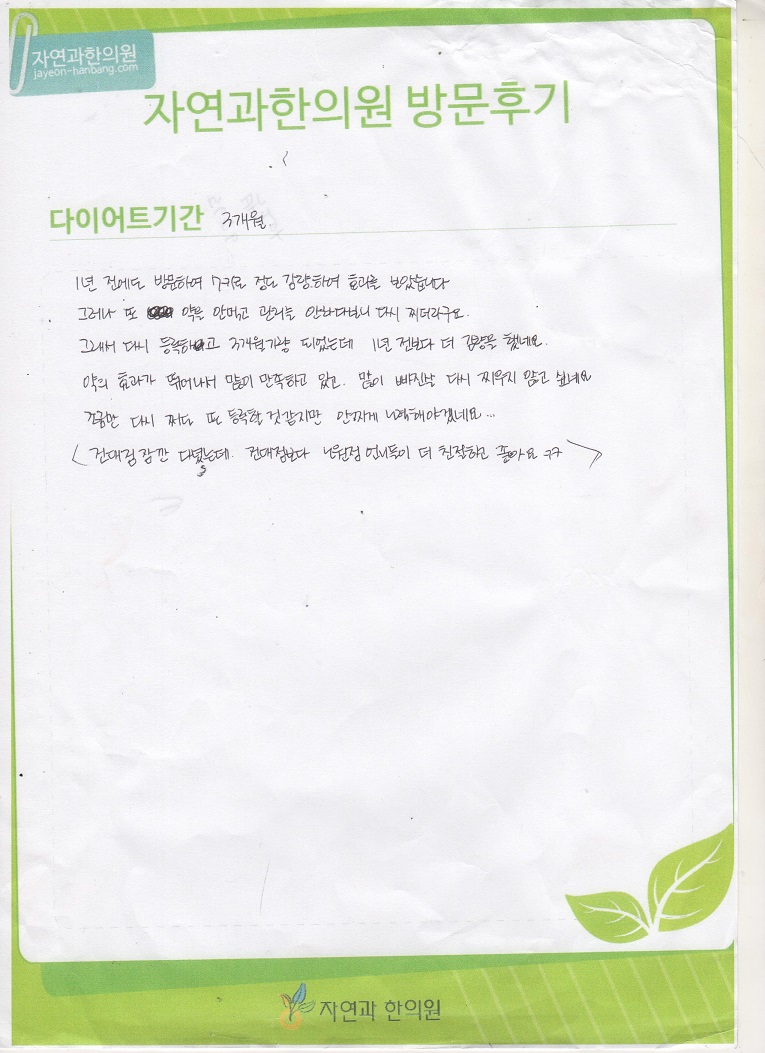 자연과한의원
jayeon-hanbang.com
자연과한의원 방문후기
다이어트기간 3개월.
1년 전에도 방문하여 7키로 정도 감량하여 효과를 보았습니다
그러나 또 약을 안먹고 관리를 안하다보니 다시 찌더라구요.
그래서 다시 등록하고 3개월가량 되었는데 1년 전보다 더 감량을 했네요.
약의 효과가 뛰어나서 많이 만족하고 있고. 많이 빠진살 다시 찌우지 않고 싶네요
다시 쪄도 또 등록할 것 같지만 안찌게 노력해야겠네요...
< 건대점 잠깐 다녔는데. 건대점보다 노원점 언니들이 더 친절하고 좋아요 ㅋㅋ >
자연과 한의원